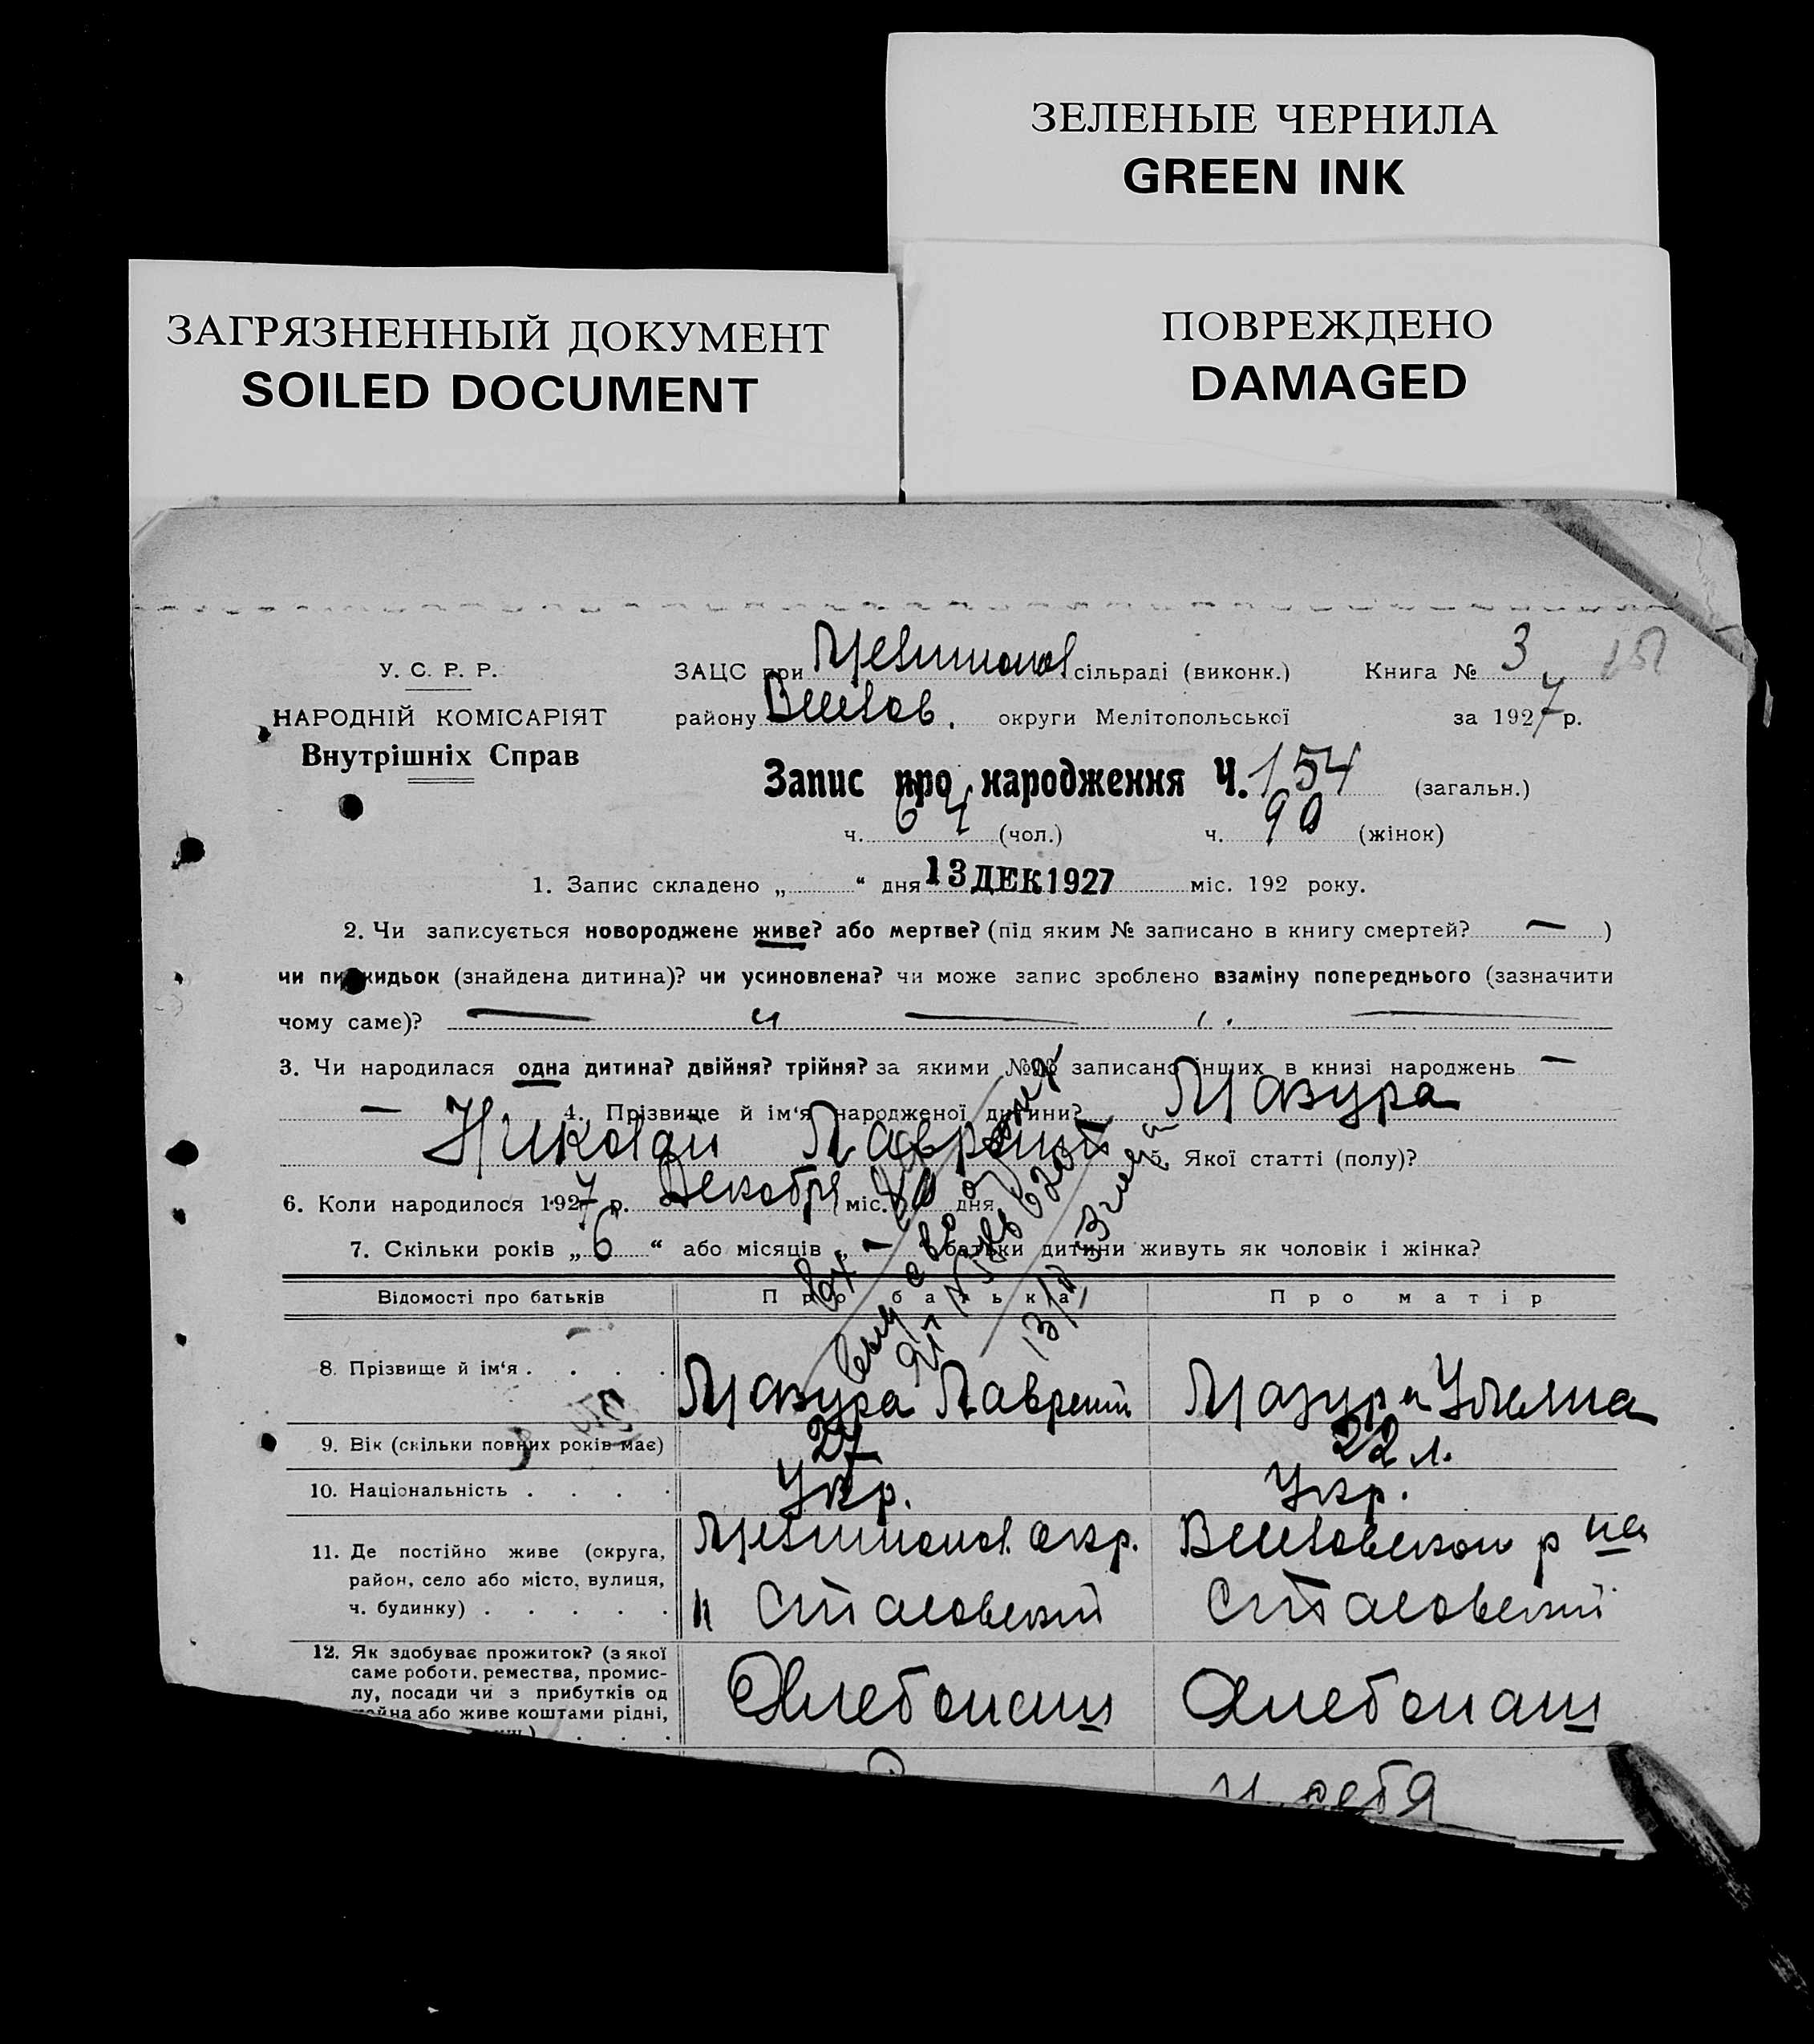 ЗЕЛЕНЫЕ ЧЕРНИЛА
GREEN INK
ЗАГРЯЗНЕННЫЙ ДОКУМЕНТ
SOILED DOCUMENT
ПОВРЕЖДЕНО
DAMAGED
У. С. Р. Р.
НАРОДНІЙ КОМІСАРІЯТ
Внутрішніх Справ
ЗАЦС при сільраді (виконк.) Книга № 3
району округи Мелітопольської за 1927 р.
Запис про народження Ч. 154 (загальн.)
ч. 64 (чол.) ч. 90 (жінок)
1. Запис складено „ “ дня 13 ДЕК 1927 міс. 192 року.
2. Чи записується новороджене живе? або мертве? (під яким № записано в книгу смертей? — )
чи підкидьок (знайдена дитина)? чи усиновлена? чи може запис зроблено взаміну попереднього (зазначити
чому саме)? — „ — „ —
3. Чи народилася одна дитина? двійня? трійня? за якими №№ записано інших в книзі народжень —
— 4. Прізвище й ім‘я народженої дитини? Мазура
Николай Лаврентий 5. Якої статті (полу)?
6. Коли народилося 1927 р. Декабря міс. дня
7. Скільки років „ 6 “ або місяців „ — батьки дитини живуть як чоловік і жінка?
Відомості про батьків Про батька Про матір
8. Прізвище й ім‘я . . . . Мазура Лаврентий Мазура Ульяна
9. Вік (скільки повних років має) 27 22 л.
10. Національність . . . . Укр. Укр.
11. Де постійно живе (округа, район, село або місто, вулиця, ч. будинку) . . . . . окр.
Хлебопаш Хлебопаш
12. Як здобуває прожиток? (з якої
саме роботи, ремества, промис-
лу, посади чи з прибутків од
майна або живе коштами рідні,